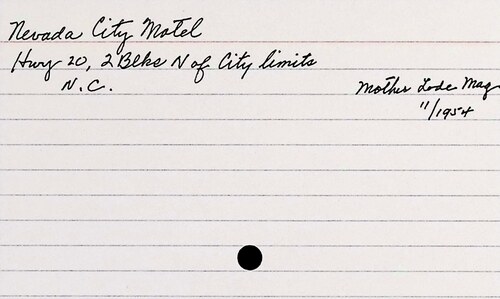 Nevada City Motel
Hwy 20, 2 Blks N of City limits
N.C.
Mother Lode Mag
11/1954